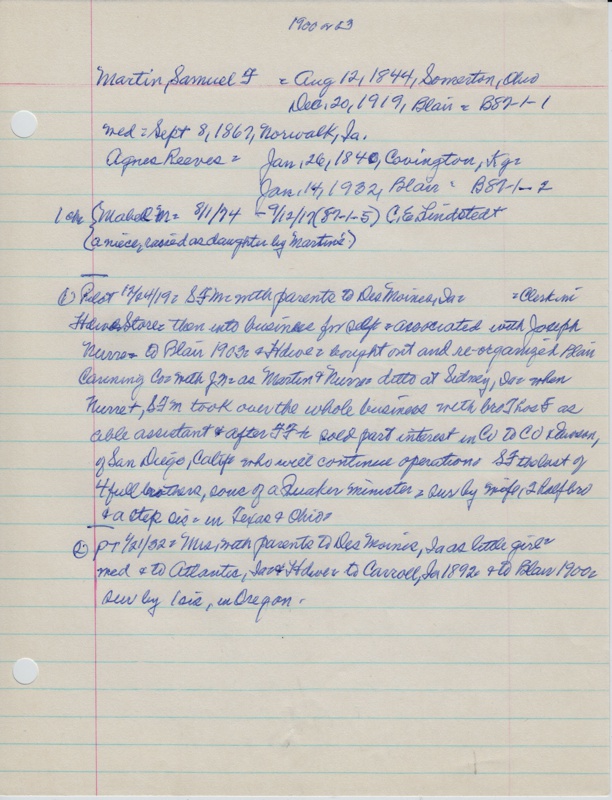 1900 or 23
Martin, Samuel F = Aug 12, 1844, Somerton, Ohio
Dec. 20, 1919, Blair = B87-1-1
med = Sept 8, 1867, Norwalk, Ia.
Agnes Reeves = Jan, 26, 1840, Covington, Ky=
Jan, 14, 1932, Blair = B87-1-2
1 ch (Mabel M= 8/1/74 - 9/12/17 (87-1-5) C.E. Lindstedt
(a niece, rasied as daughter by Martin's)
① Pilot 12/24/19 = S F M = with parents to Des Moines, Ia = = Clerk in
Hdwe Store = then into business for self & associated with Joseph
Nurre = to Blair 1903 = & Hdwe = bought out and re-organized Blair
Canning Co = with J.N= as Martin & Nurre = ditto at Sidney, Ia = when
Nurre +, S F M took over the whole business with bro Thos F as
able assistant & after T F + sold part interest in Co to CO
of San Diego, Calif who will continue operations = S F the last of
4 full brothers, sons of a Quaker minister = sur by wife, 2 half bro
& a step sis = in Texas & Ohio =
② PT 1/21/32 = Mrs, with parents to Des Moines, Ia as little girl =
med & to Atlantic, Ia = & Hdwe = to Carroll, Ia 1892 = & to Blair 1900 =
sur by 1 sis, in Oregon.